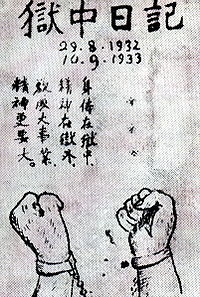 獄中日記
29.8.1932
10.9.1933
身体在獄中
精神在獄外
欲成大事業
精神更要大。